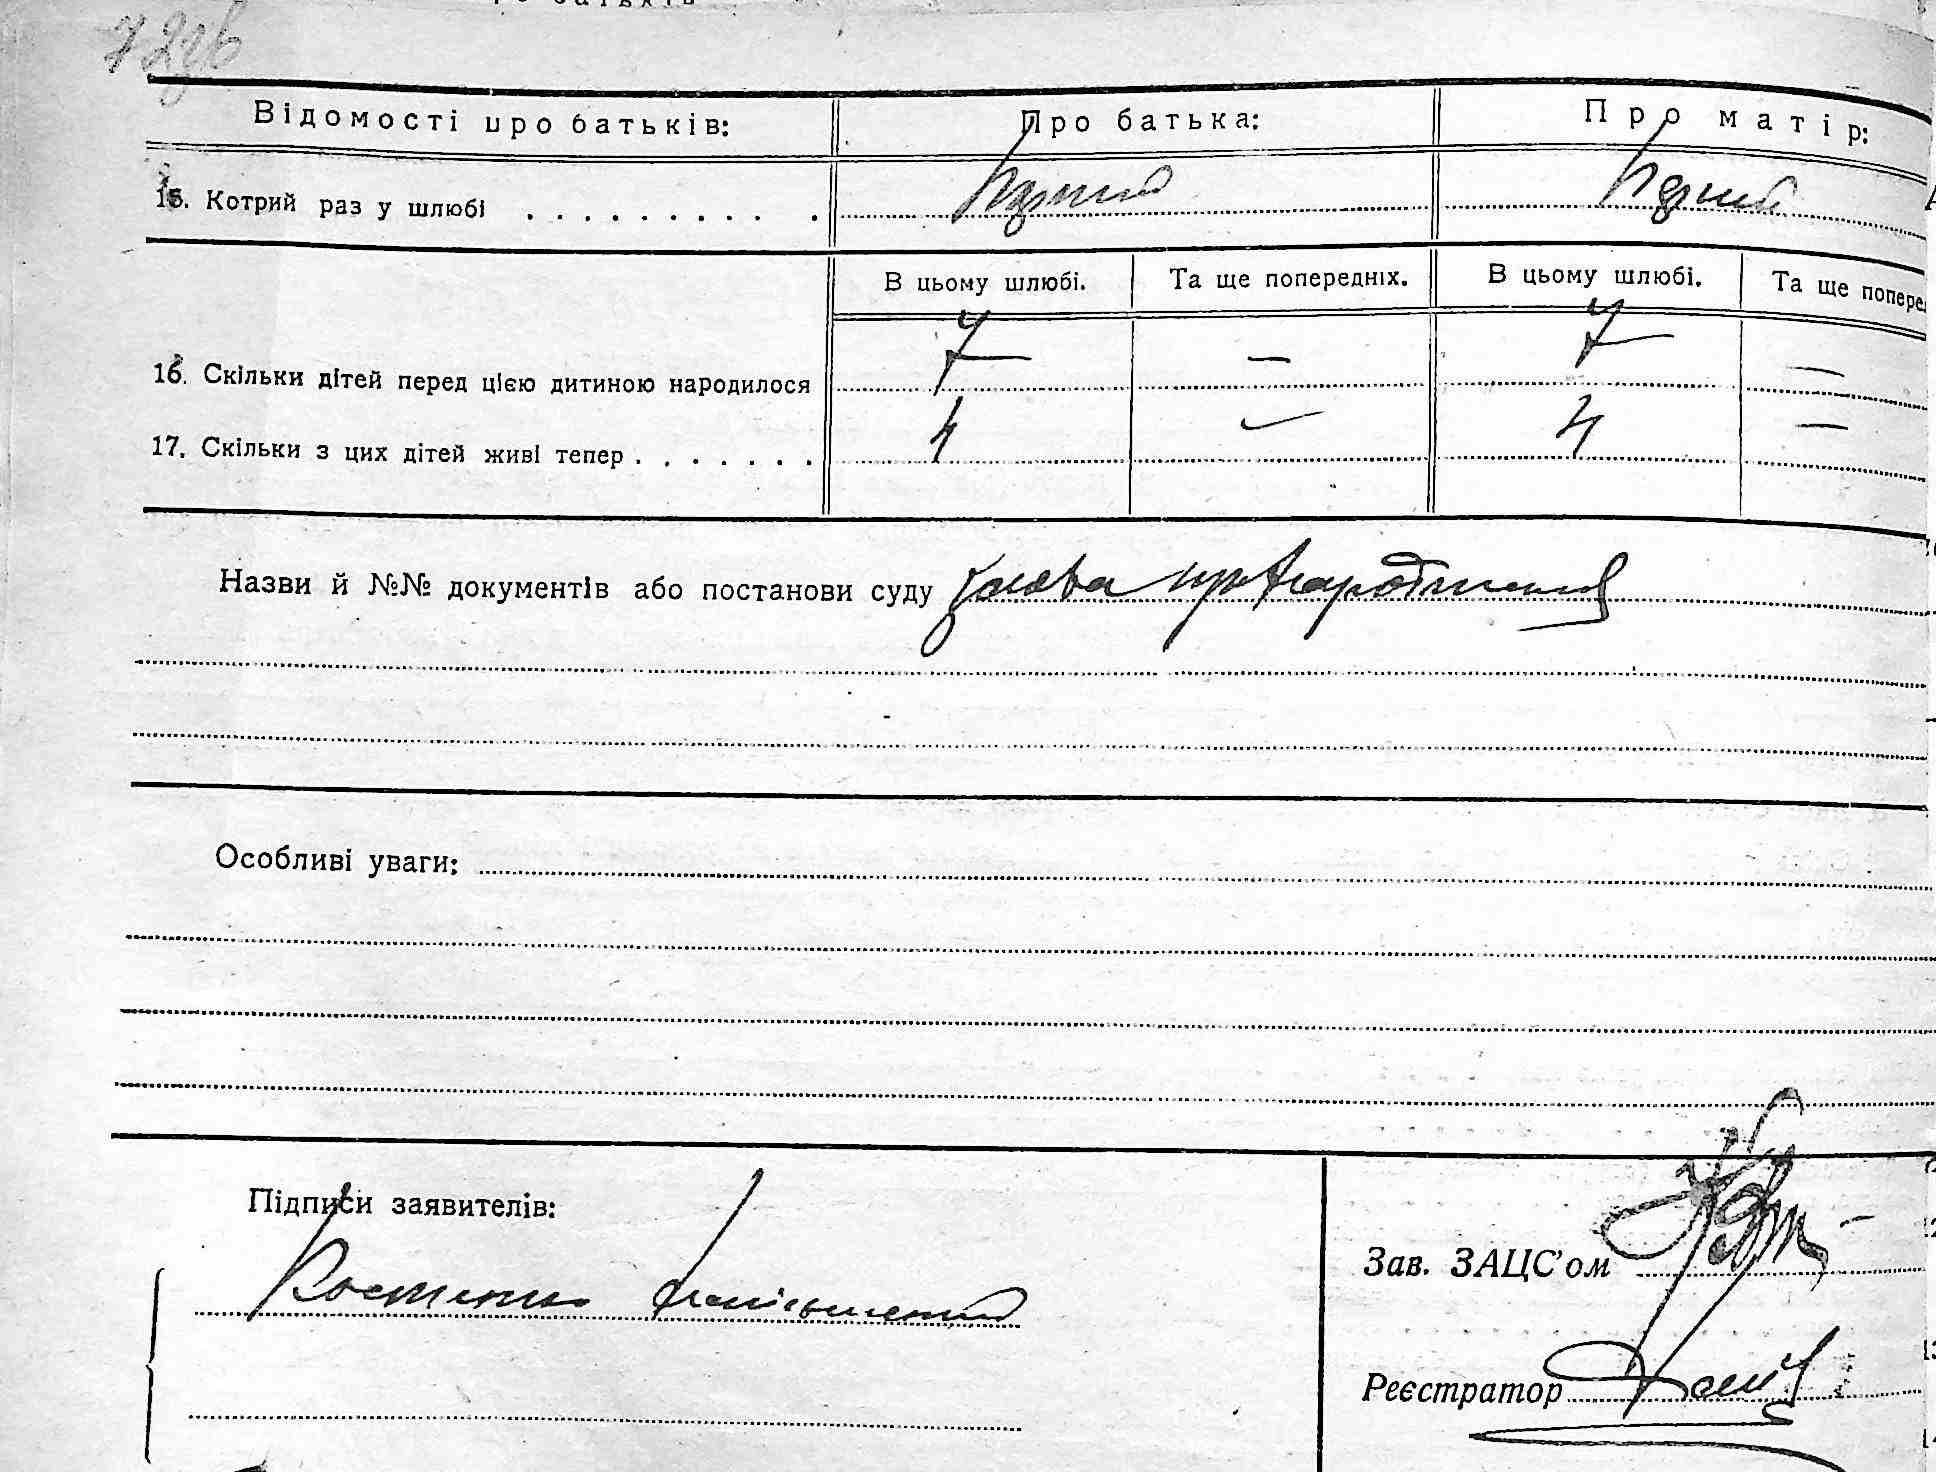 Відомості про батьків: Про батька: Про матір:
15. Котрий раз у шлюбі . . . . . . . . . . Перший Перший
В цьому шлюбі. Та ще попередніх. В цьому шлюбі. Та ще попере
16. Скільки дітей перед цією дитиною народилося 7 — 7 —
17. Скільки з цих дітей живі тепер . . . . . . . 4 — 4 —
Назви й №№ документів або постанови суду заява про народження
Особливі уваги:
Підписи заявителів:
Зав. ЗАЦС'ом
Костенко
Реєстратор